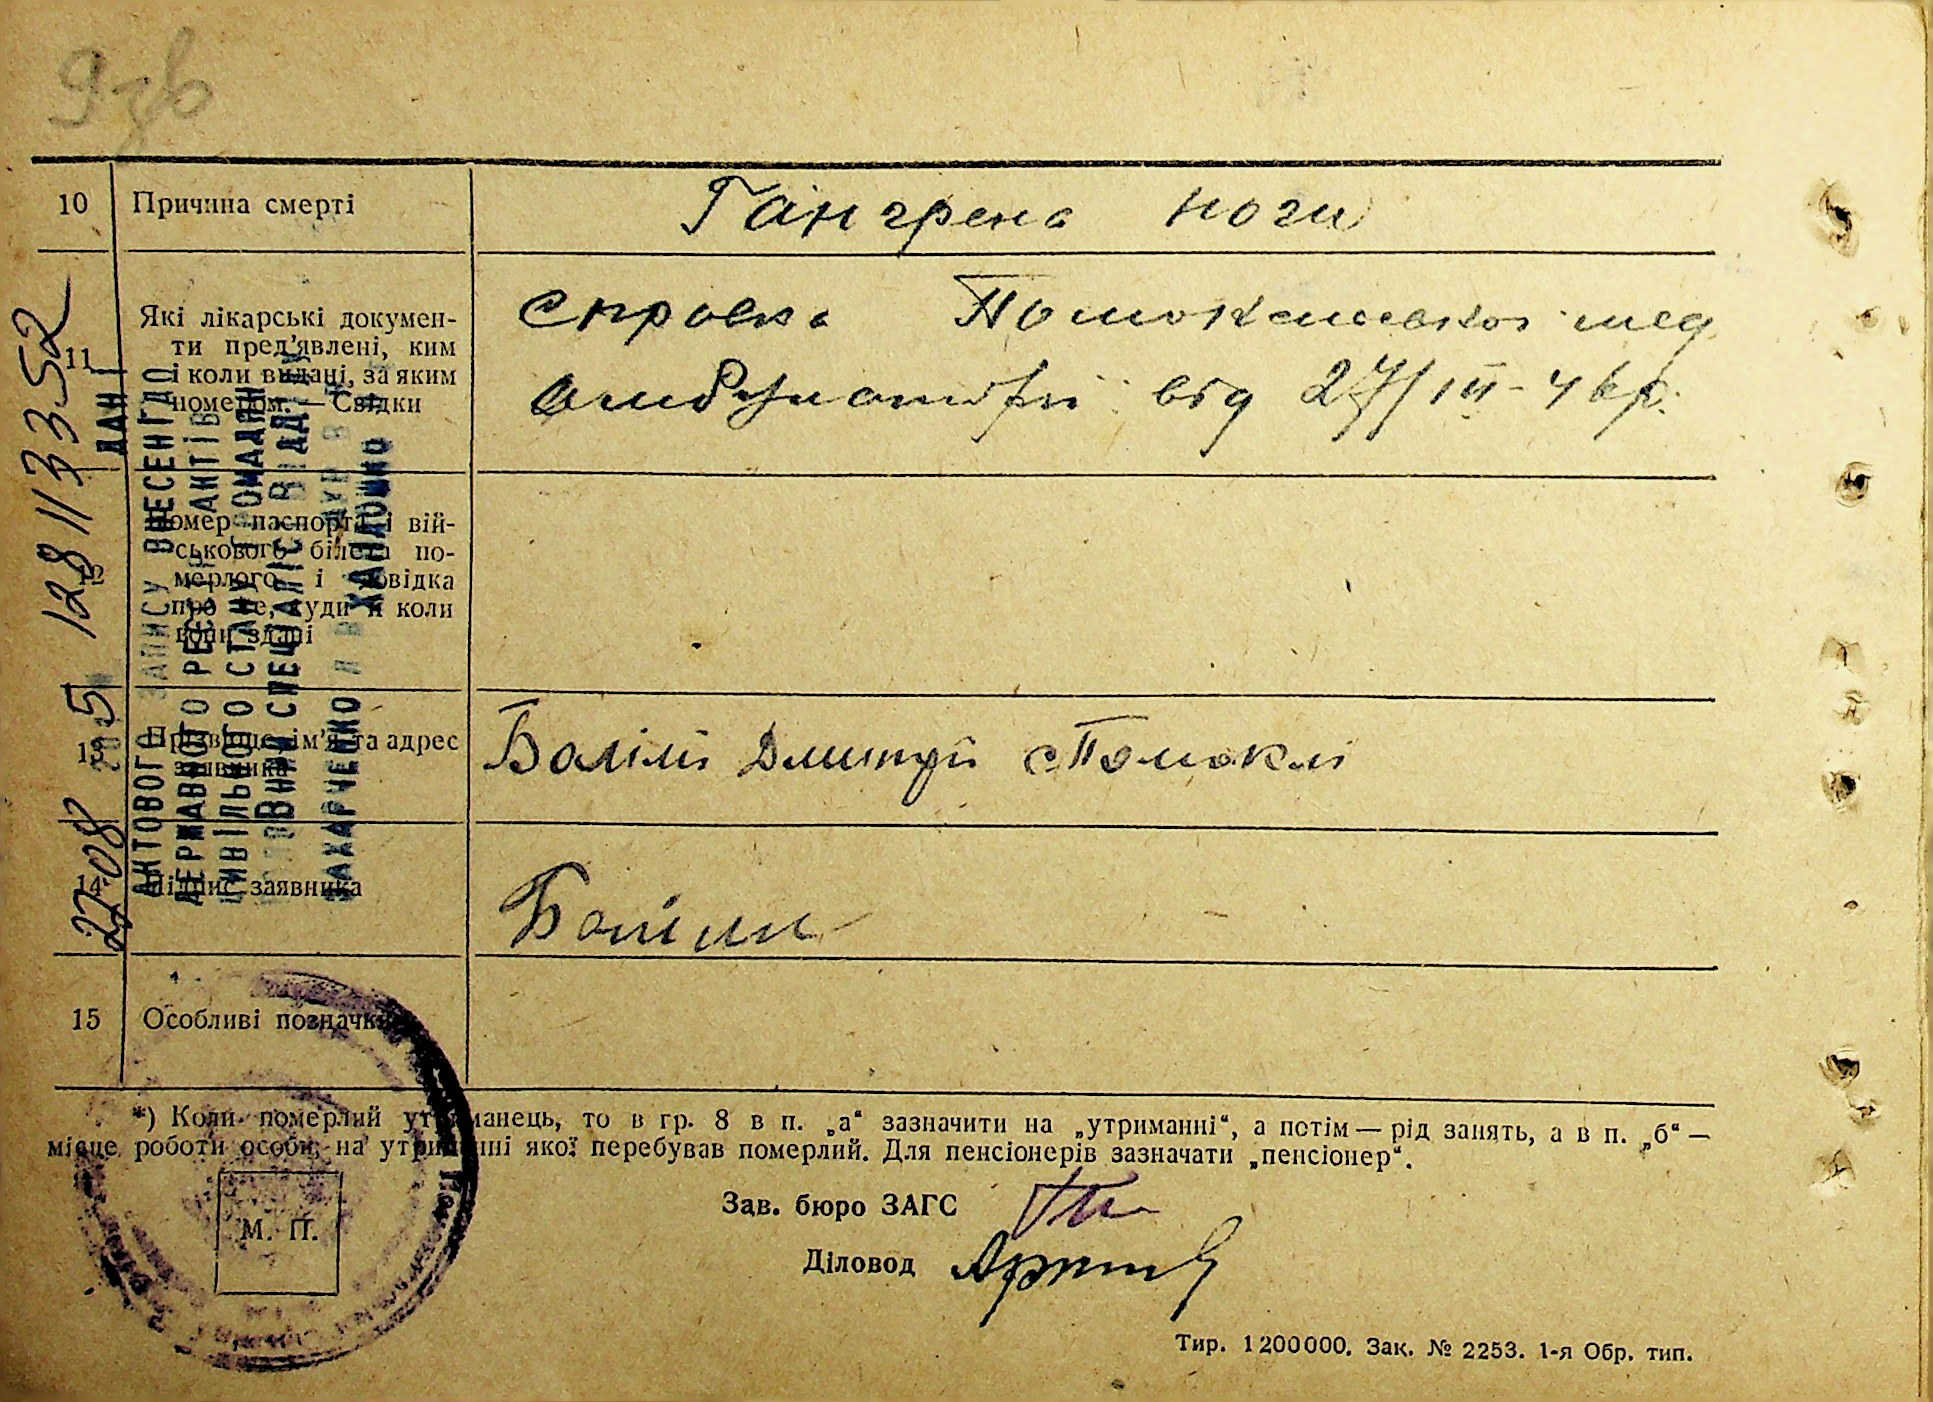 10 Причина смерті Гангрена ноги
11 Які лікарські докумен-
ти пред'явлені, ким
і коли видані, за яким
номером. — Свідки
справка Помоклевськоі мед
амбулаторіі від 27/III-4 р.
12 Номер паспорта і вій-
ського білета по-
мерлого і довідка
про те, куди й коли
вони здані
13 Прізвище, ім'я та адрес
заявника
Дмитрій с Помоклі
14 Підпис заявника
15 Особливі позначки
*) Коли померлий утриманець, то в гр. 8 в п. „а“ зазначити на „утриманні“, а потім — рід занять, а в п. „б“ —
місце роботи особи, на утриманні якої перебував померлий. Для пенсіонерів зазначати „пенсіонер“.
Зав. бюро ЗАГС
М. П.
Діловод
Тир. 1200000. Зак. № 2253. 1-я Обр. тип.
22 08 5 1281133352
ДАНІ
АКТОВОГО ЗАПИСУ ВНЕСЕНІ ДО
ДЕРЖАВНОГО РЕЄСТРУ АКТІВ
ЦИВІЛЬНОГО СТАНУ ГРОМАДЯН
СПЕЦІАЛІСТ ВІДДІЛУ
ЗАХАРЧЕНКО